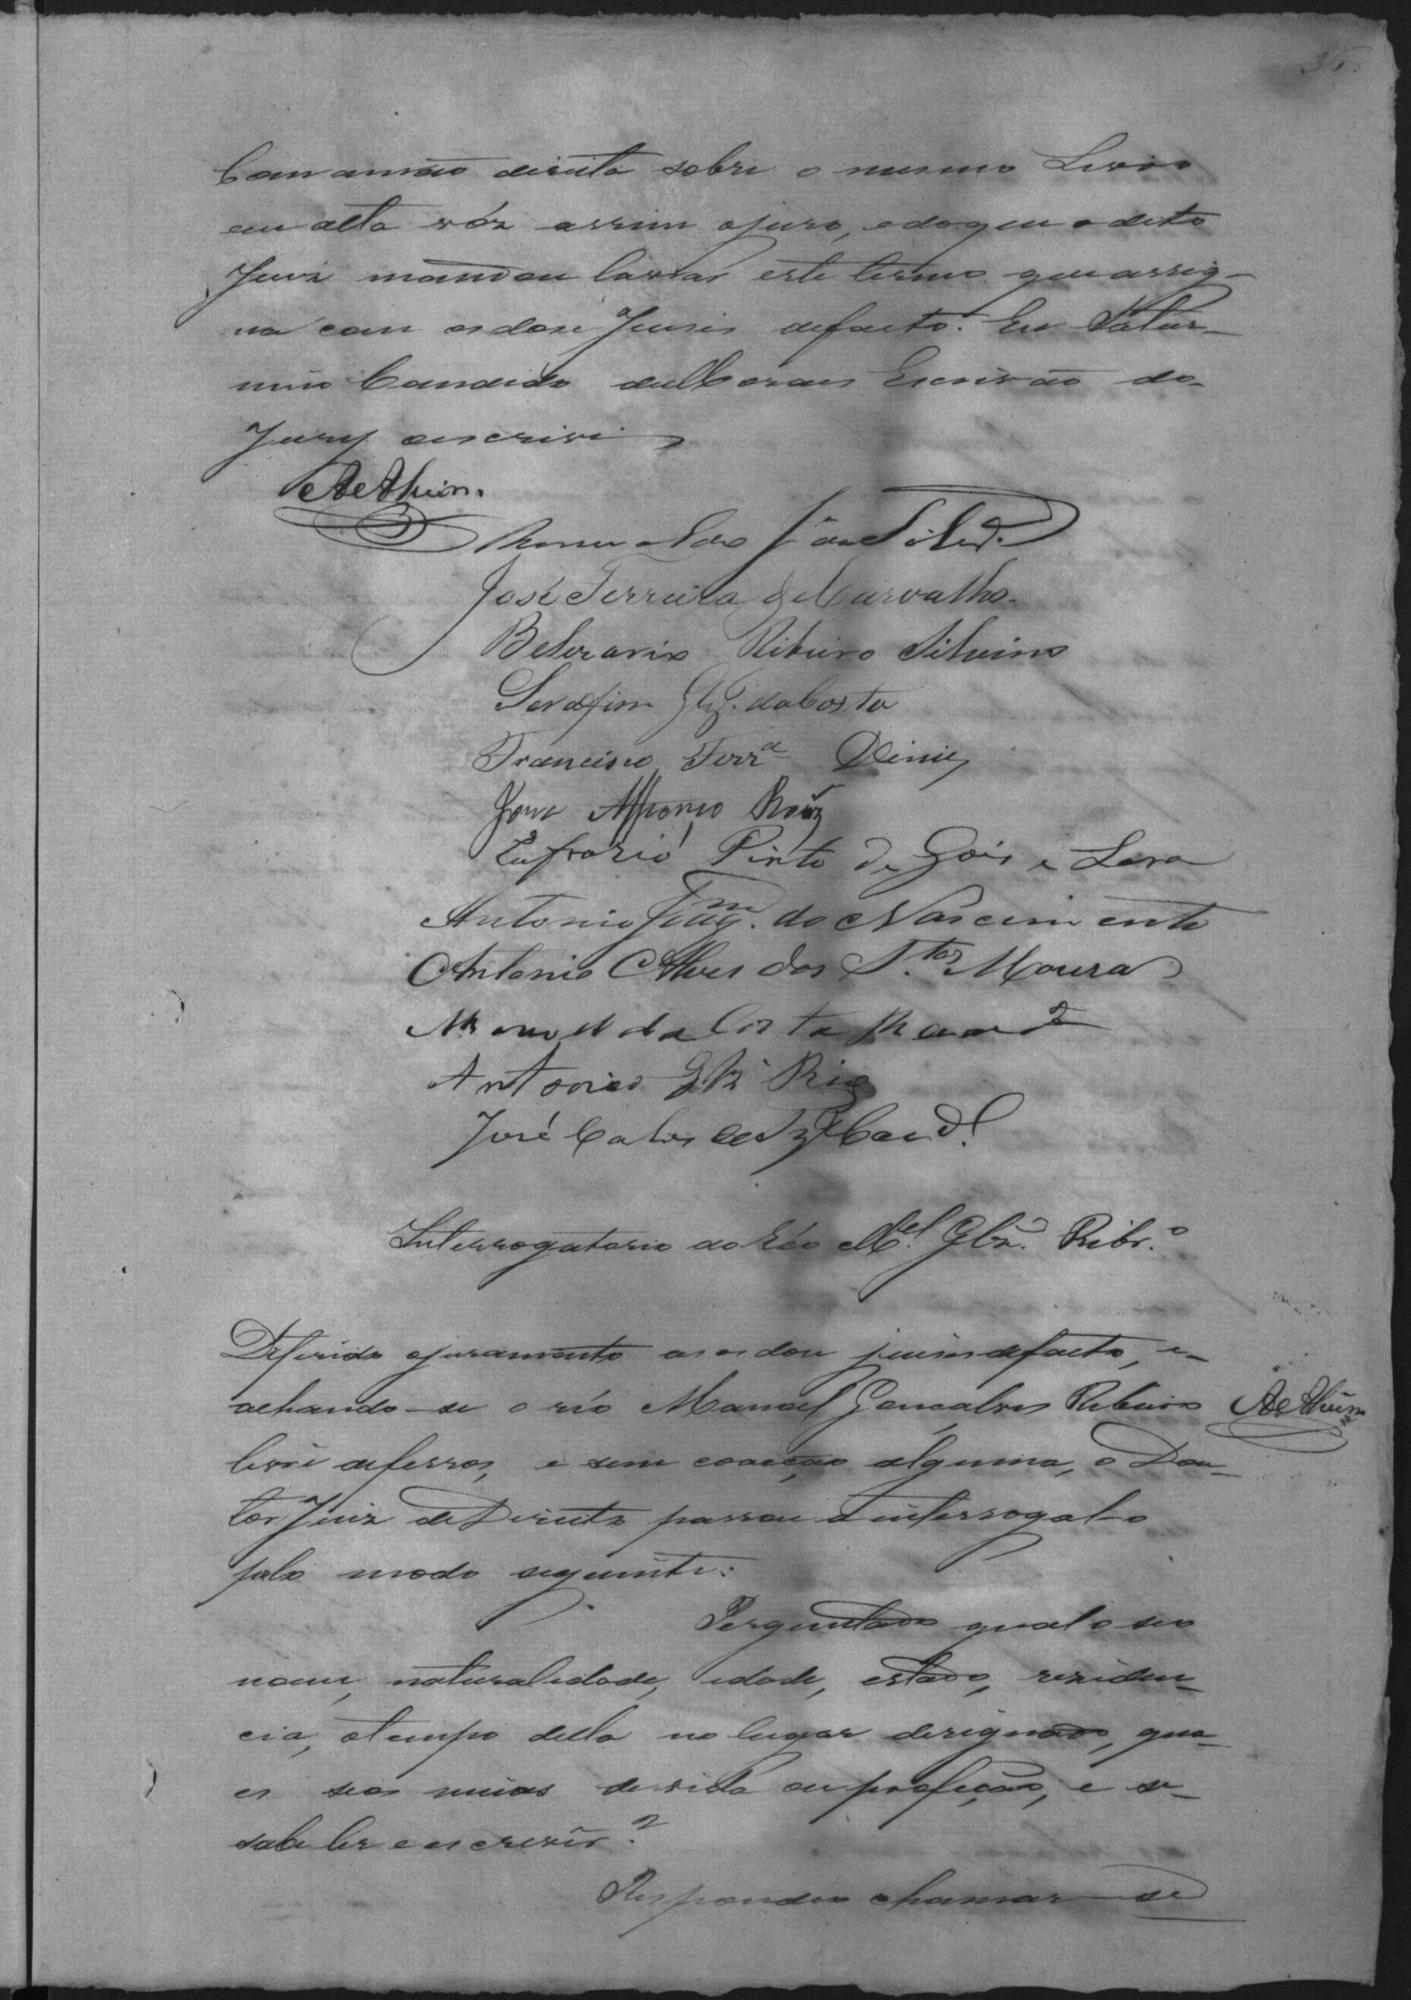 36
Com a mão direita sobre o mesmo Livro
em alta vóz assim o juro, e do que o dito
Juiz mandou lavrar este termo que assig-
na com os dose Juises de facto. Eu Satur-
nino Candido de Moraes Escrivão do
Jury o escrivi
José Ferreira de Carvalho.
Belizario Ribeiro Silvino
Serafim Glz. da Costa
Francisco Ferr.a Diniz
José Affonço Roiz
Eufrazio Pinto de Gois e Lara
Antonio do Nascimento
Antonio Alves dos S.tos Moura
Manoel da Costa
Antonio
José
Interrogatorio ao réo M.el Glz. Ribr.o
Deferido o juramento aos dose juises de facto, e
achando-se o réo Manoel Gonçalves Ribeiro
livre de ferros, e sem coacção alguma, o Dou-
tor Juiz de Direito passou a interrogal-o
pelo modo seguinte:
Perguntado qual o seu
nome, naturalidade, idade, estado, residen-
cia, e tempo della no lugar designado, qua-
es seos meios de vida ou profeção, e se
sabe ler e escrever?
Respondeo chamar-se